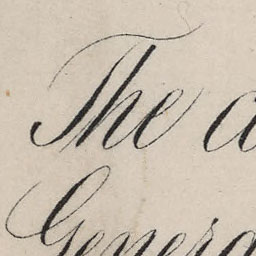 The
Genera